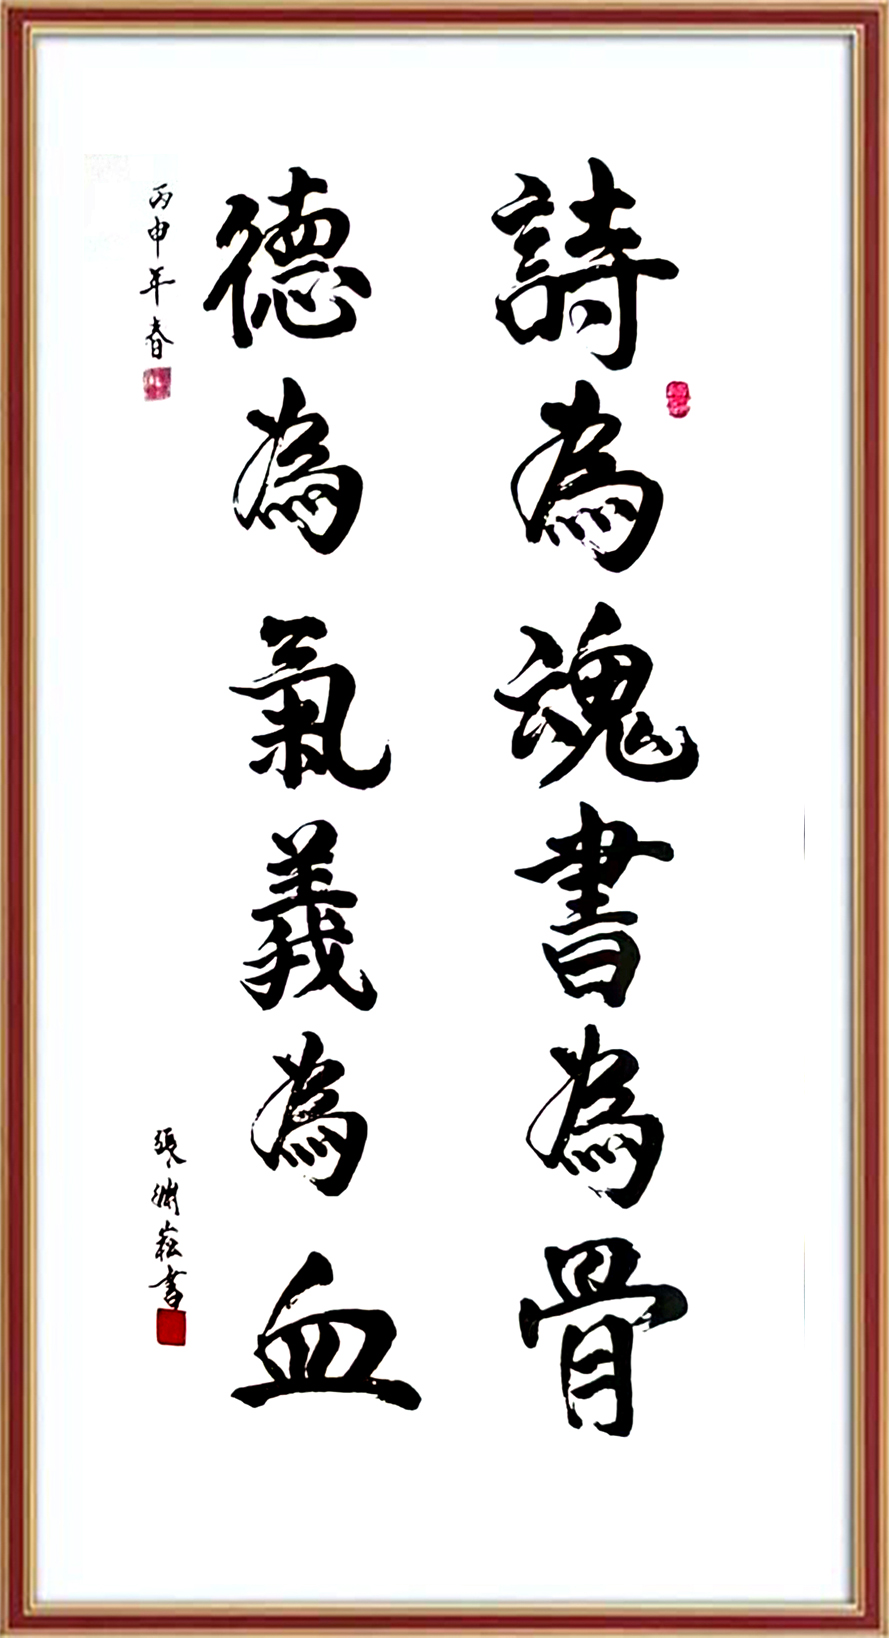 詩為魂書為骨
德為氣義為血
丙申年春
張淵菘書